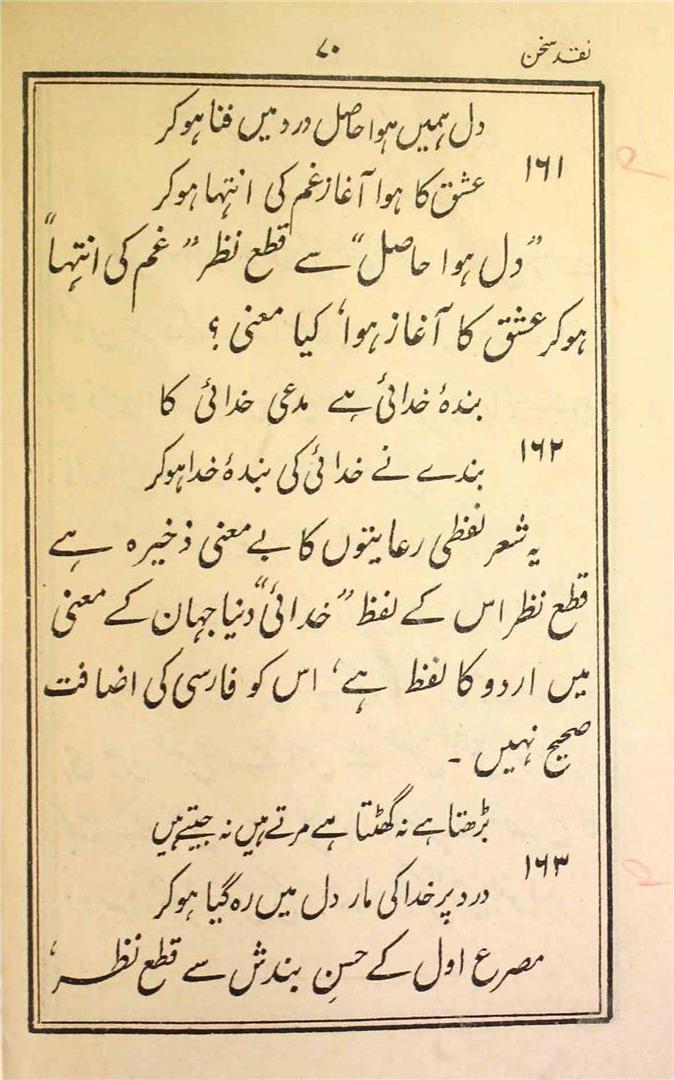 نقد سخن
۷۰
دل ہمیں ہوا حاصل درد میں فنا ہو کر
۱۶۱
عشق کا ہوا آغاز غم کی انتہا ہو کر
”دل ہوا حاصل“ سے قطع نظر ”غم کی انتہا“
ہو کر عشق کا آغاز ہوا‘ کیا معنی ؟
بندۂ خدائی ہے مدعی خدائی کا
۱۶۲
بندے نے خدائی کی بندۂ خدا ہو کر
یہ شعر لفظی رعایتوں کا بے معنی ذخیرہ ہے
قطع نظر اس کے لفظ ”خدائی“ دنیا جہان کے معنی
میں اردو کا لفظ ہے‘ اس کو فارسی کی اضافت
صحیح نہیں ۔
بڑھتا ہے نہ گھٹتا ہے مرتے ہیں نہ جیتے ہیں
۱۶۳
درد پر خدا کی مار دل میں رہ گیا ہو کر
مصرع اول کے حسنِ بندش سے قطع نظر،